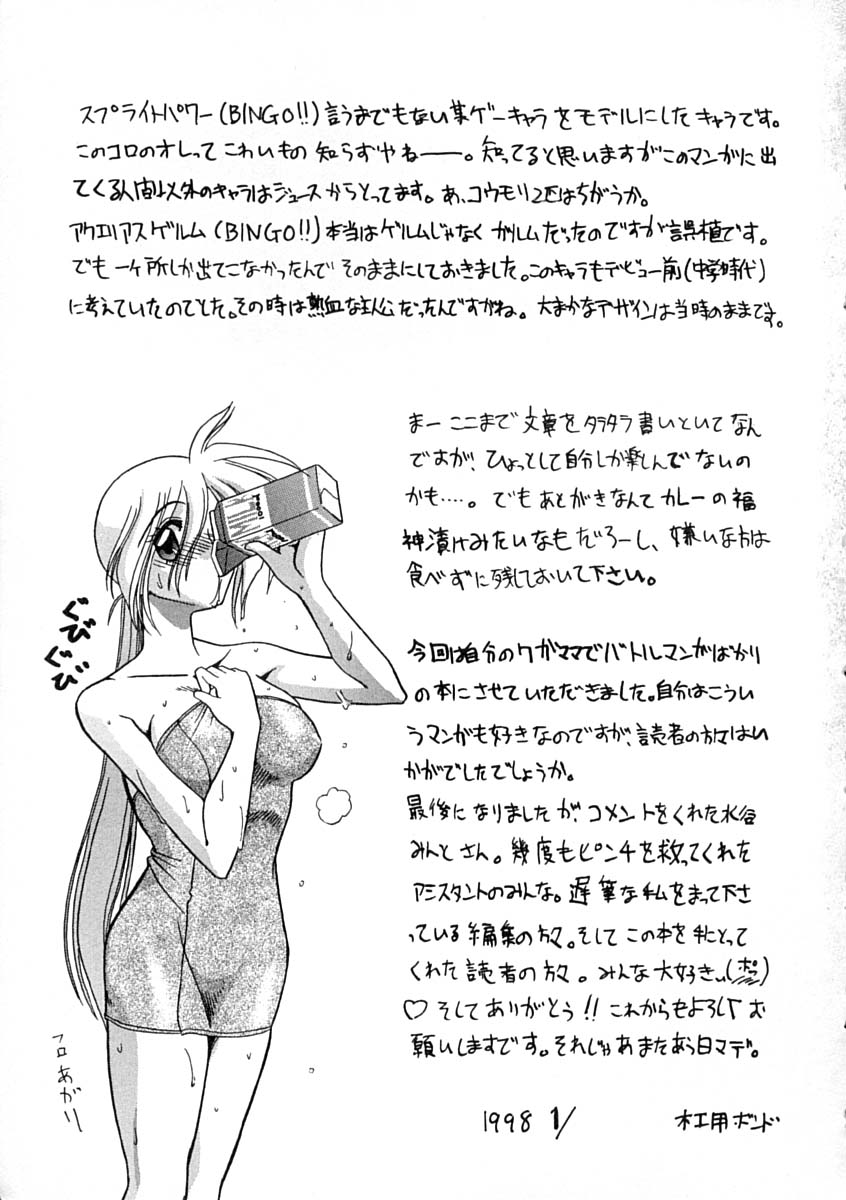 スプライトパワー(BINGO!!)言うまでもない某ゲーキャラをモデルにしたキャラです。
このコロのオレってこわいもの知らずやねー。知ってると思いますがこのマンガに出
てくる人間以外のキャラはジュースからとってます。あ、コウモリ2匹はちがうか。
アクエリアスゲルム(BINGO!!)本当はゲルムじゃなくガルムだったのですが誤植です。
でも一ヶ所しか出てこなかったんでそのままにしておきました。このキャラもデビュー前(中学時代)
に考えていたのでした。その時は熱血な主人公だったんですがね。大まかなデザインは当時のままです。
まーここまで文章をタラタラ書いといてなん
ですが、ひょっとして自分しか楽しんでないの
かも…。でもあとがきなんてカレーの福
神漬けみたいなもだろーし、嫌いな方は
食べずに残しておいて下さい。
ぐびぐび
今回は自分のワガママでバトルマンガばかり
の本にさせていただきました。自分はこうい
うマンガも好きなのですが、読者の方々はい
かがでしたでしょうか。
最後になりましたが、コメントをくれた水谷
みんとさん。幾度もピンチを救ってくれた
アシスタントのみんな。遅筆な私をまって下さ
っている編集の方々。そしてこの本を手にとって
くれた読者の方々。みんな大好き(ポッ)
♡そしてありがとう!!これからもよろしくお
願いしますです。それじゃあまたあう日マデ。
フロあがり
1998 1/ 木工用ボンド